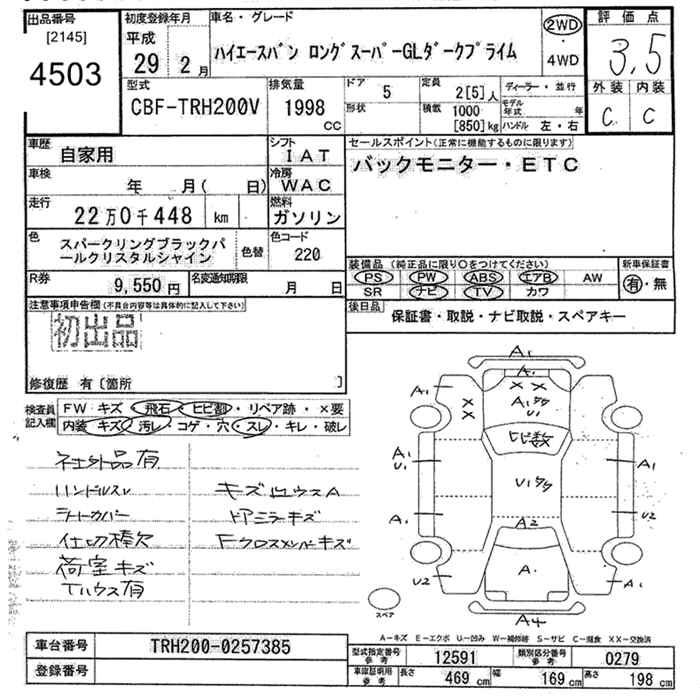 出品番号
[2145]
4503
初度登録年月
平成
29 2月
車名・グレード
ハイエースバン ロングスーパーGLダークプライム
2WD
・
4WD
評価点
3.5
外装 内装
C C
型式
CBF-TRH200V
排気量
1998
CC
ドア 5
形状
定員 2[5]人
積載 1000
[850]kg
ディーラー・並行
モデル年式 年
ハンドル 左・右
車歴
自家用
シフト
IAT
車検
年 月( 日)
冷房
WAC
走行
22万0千448 km
燃料
ガソリン
色
スパークリングブラックパ
ールクリスタルシャイン
色替
色コード
220
R券
9,550円
名変通知期限
月 日
セールスポイント(正常に機能するものに限ります)
バックモニター・ETC
装備品(純正品に限り○をつけてください)
新車保証書
PS PW ABS エアB AW
SR ナビ TV カワ
有・無
後日品
保証書・取説・ナビ取説・スペアキー
注意事項申告欄(不具合内容等は具体的に記入して下さい)
初出品
修復歴 有〔箇所 〕
検査員
記入欄
FW キズ・飛石・ヒビ割・リペア跡・×要
内装 キズ・汚レ・コゲ・穴・スレ・キレ・破レ
社外品有
ハンドルスレ
シートカバー
仕切棒欠
荷室キズ
Tハウス有
キズ
ドアミラーキズ
Fクロスメンバーキズ
A1
A1
A1
U1
ヒビ数
A1
U1
A1
U1
A1
U2
A2
U2
A1
A1
A4
スペア
A-キズ E-エクボ U-凹み W-補修跡 S-サビ C-腐食 XX-交換済
車台番号
TRH200-0257385
登録番号
型式指定番号
参考
12591
類別区分番号
参考
0279
車庫証明用
参考
長さ 469 cm
幅 169 cm
高さ 198 cm